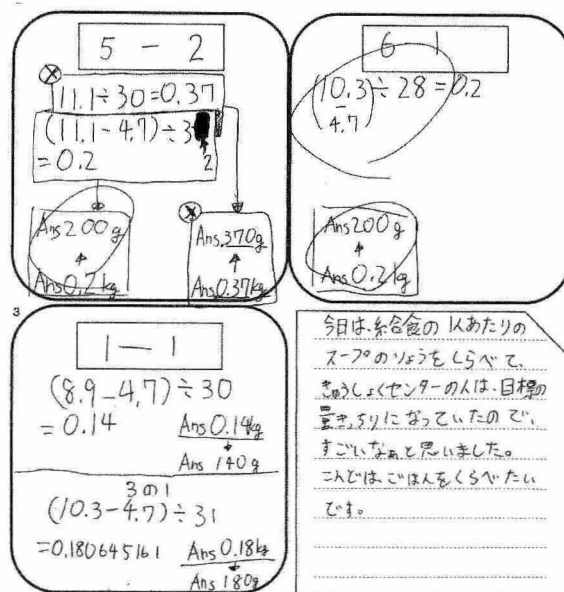 5 - 2
11.1÷30=0.37
(11.1-4.7)÷3
2
=0.2
Ans200g
Ans0.2kg
Ans.370g
Ans0.37kg
6-1
(10.3-4.7)÷28=0.2
Ans200g
Ans0.2kg
3
1-1
(8.9-4.7)÷30
=0.14
Ans0.14kg
Ans 140g
3の1
(10.3-4.7)÷31
=0.180645161
Ans 0.18kg
Ans 180g
今日は、給食の1人あたりの
スープのりょうをしらべて、
きゅうしょくセンターの人は、目標の
量きっちりになっていたので、
すごいなぁと思いました。
こんどは、ごはんをくらべたい
です。